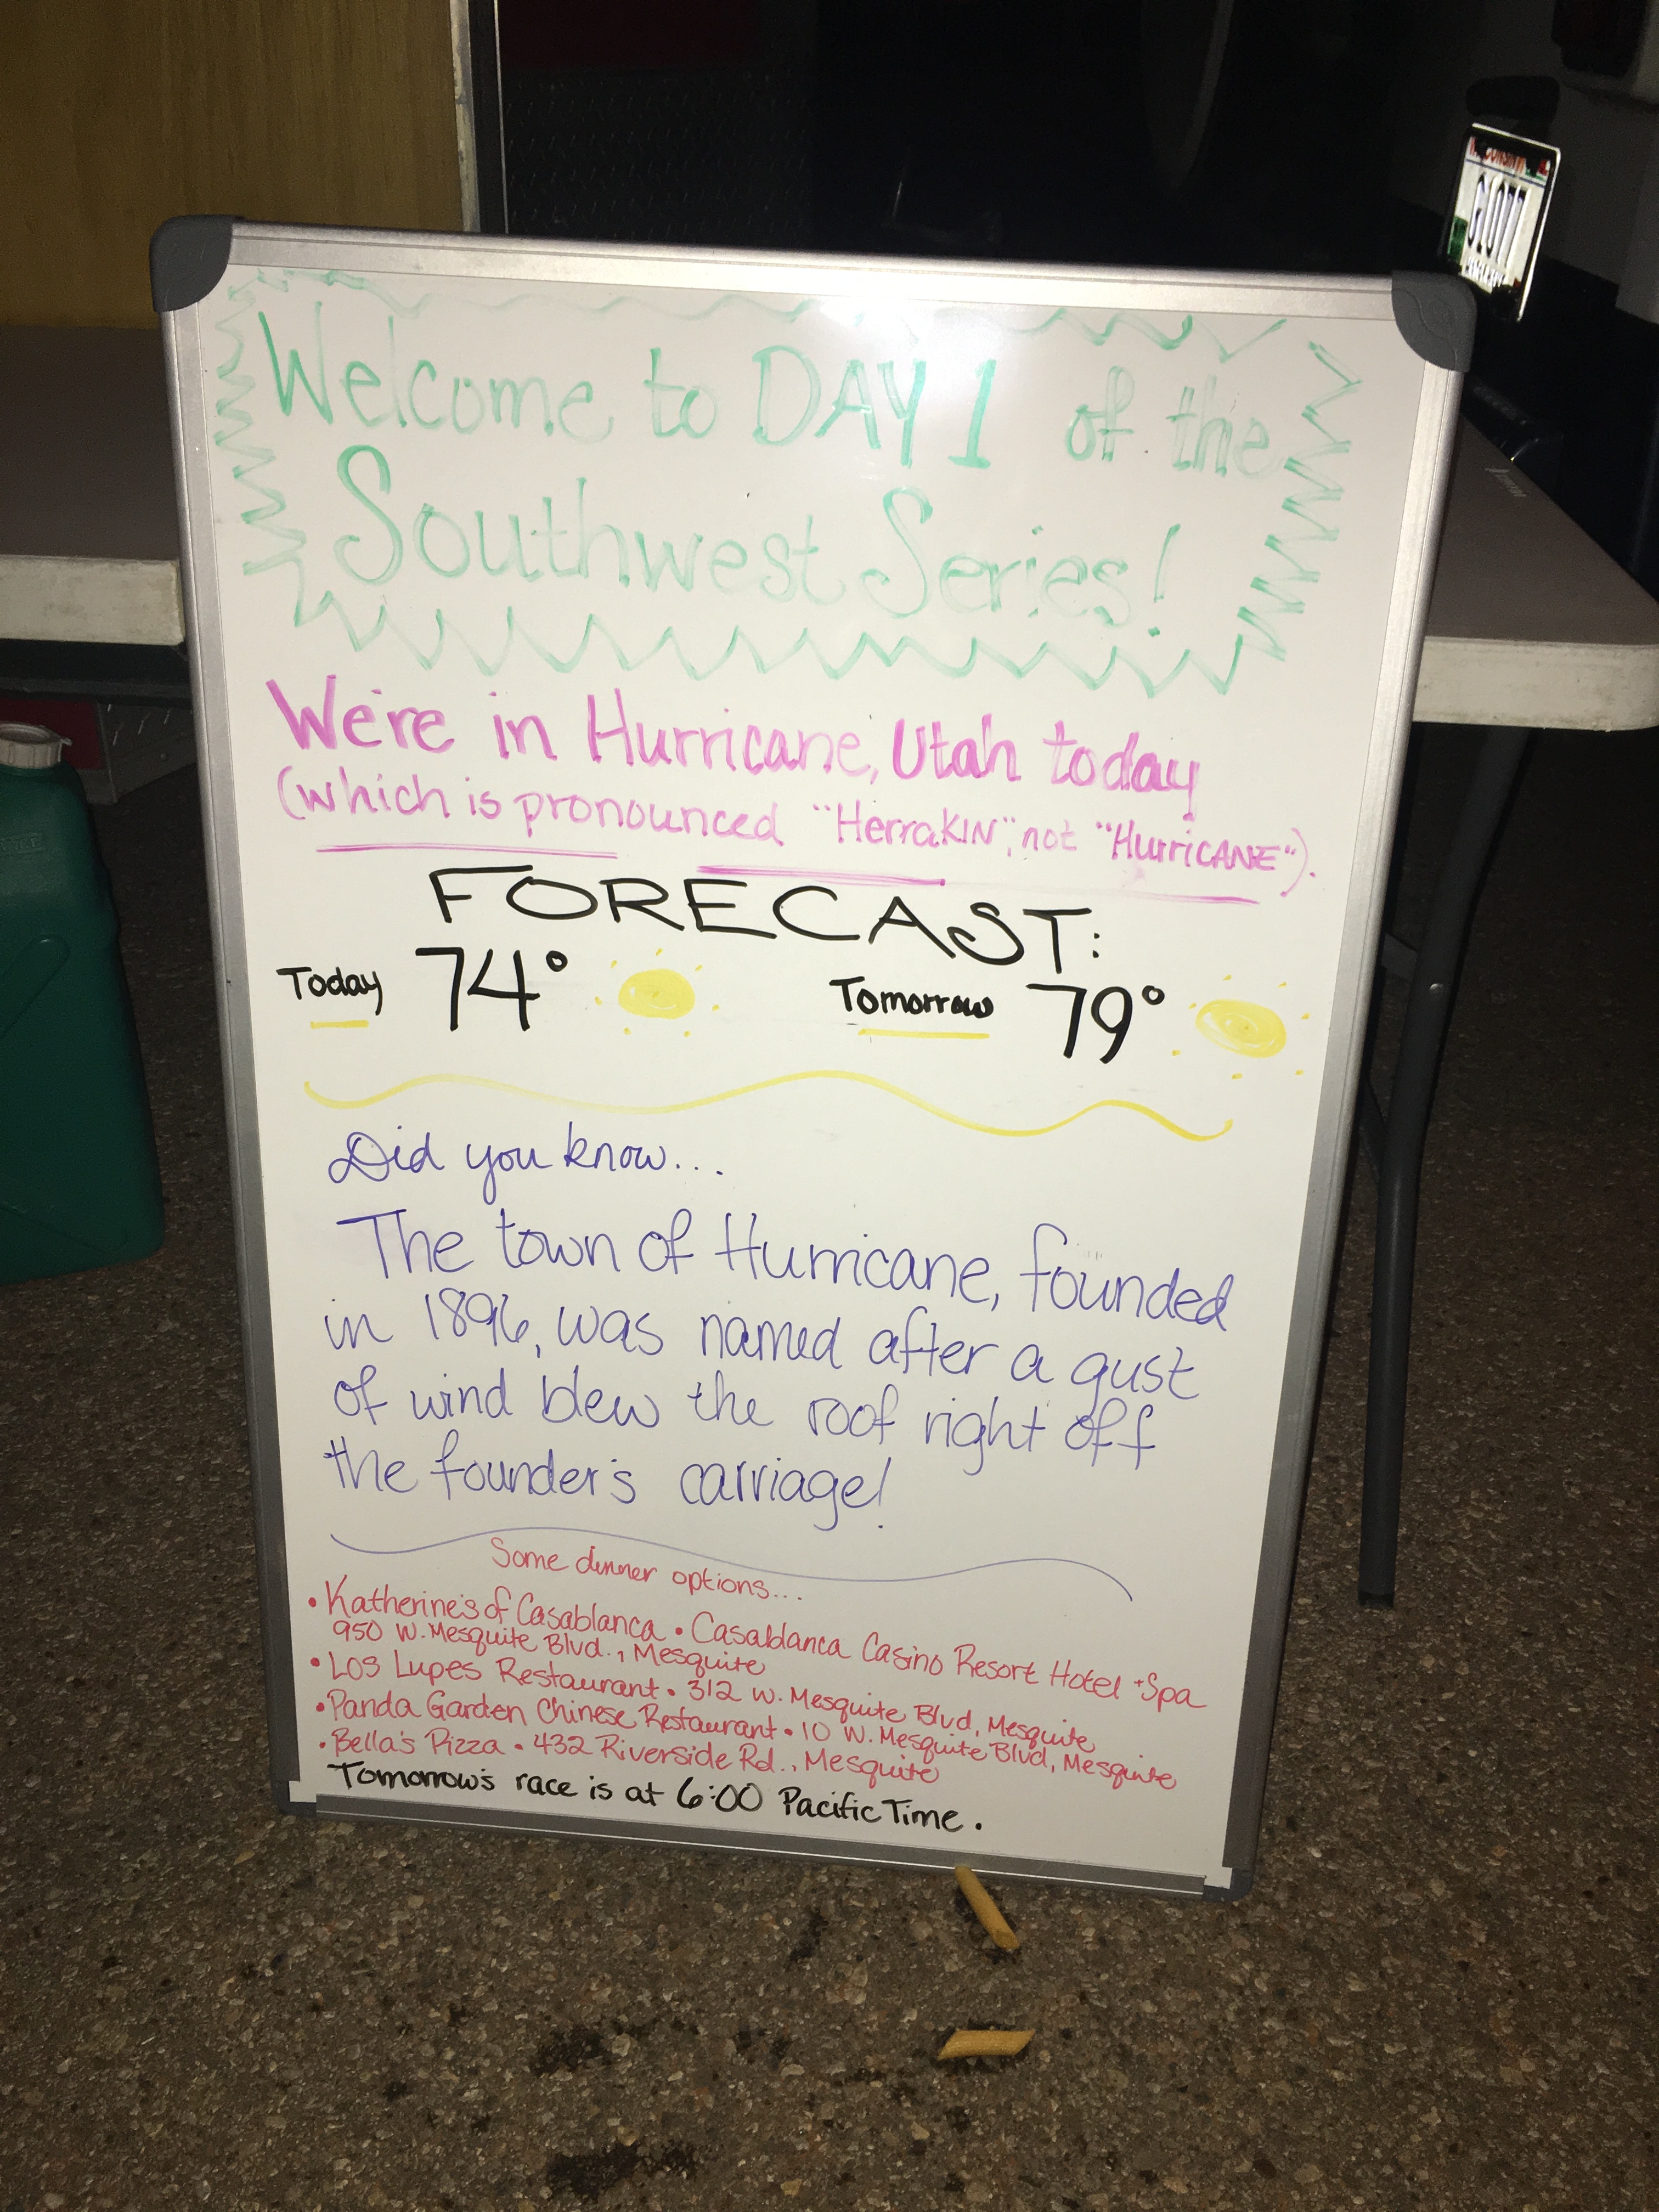 Welcome to DAY 1 of the
Southwest Series!
We're in Hurricane, Utah today
(which is pronounced "HerraKIN", not "HurriCANE").
FORECAST:
Today 74° Tomorrow 79°
Did you know...
The town of Hurricane, founded
in 1896, was named after a gust
of wind blew the roof right off
the founder's carriage!
Some dinner options...
• Katherine's of Casablanca • Casablanca Casino Resort Hotel + Spa
950 W. Mesquite Blvd., Mesquite
• Los Lupes Restaurant • 312 W. Mesquite Blvd, Mesquite
• Panda Garden Chinese Restaurant • 10 W. Mesquite Blvd, Mesquite
• Bella's Pizza • 432 Riverside Rd., Mesquite
Tomorrow's race is at 6:00 Pacific Time.